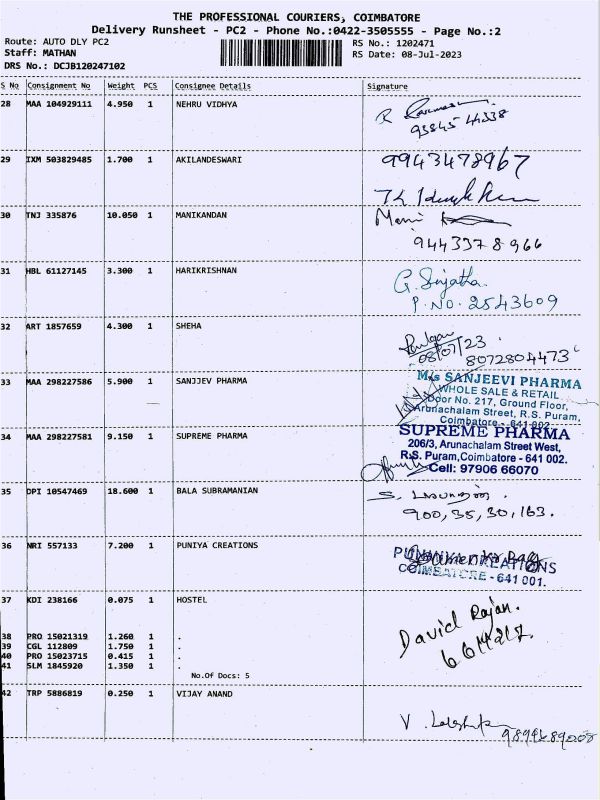 THE PROFESSIONAL COURIERS, COIMBATORE
Delivery Runsheet - PC2 - Phone No.:0422-3505555 - Page No.:2
Route: AUTO DLY PC2
Staff: MATHAN
DRS No.: DCJB120247102
RS No.: 1202471
RS Date: 08-Jul-2023
S No Consignment No Weight PCS Consignee Details Signature
28 MAA 104929111 4.950 1 NEHRU VIDHYA
93845 44338
29 IXM 503829485 1.700 1 AKILANDESWARI 9943478967
30 TNJ 335876 10.050 1 MANIKANDAN Mani
9443378966
31 HBL 61127145 3.300 1 HARIKRISHNAN G. Sujatha.
P.NO. 2543609
32 ART 1857659 4.300 1 SHEHA
08/07/23 8072804473
33 MAA 298227586 5.900 1 SANJJEV PHARMA M/s SANJEEVI PHARMA
WHOLE SALE & RETAIL
Door No. 217, Ground Floor,
Arunachalam Street, R.S. Puram,
Coimbatore - 641 002
34 MAA 298227581 9.150 1 SUPREME PHARMA SUPREME PHARMA
206/3, Arunachalam Street West,
R.S. Puram, Coimbatore - 641 002.
Cell: 97906 66070
35 DPI 10547469 18.600 1 BALA SUBRAMANIAN
900,35,30,163.
36 NRI 557133 7.200 1 PUNIYA CREATIONS CREATIONS
COIMBATORE - 641 001.
37 KDI 238166 0.075 1 HOSTEL
David Rajan.
38 PRO 15021319 1.260 1 .
39 CGL 112809 1.750 1 .
40 PRO 15023715 0.415 1 .
41 SLM 1845920 1.350 1 .
No.Of Docs: 5
42 TRP 5886819 0.250 1 VIJAY ANAND
V.